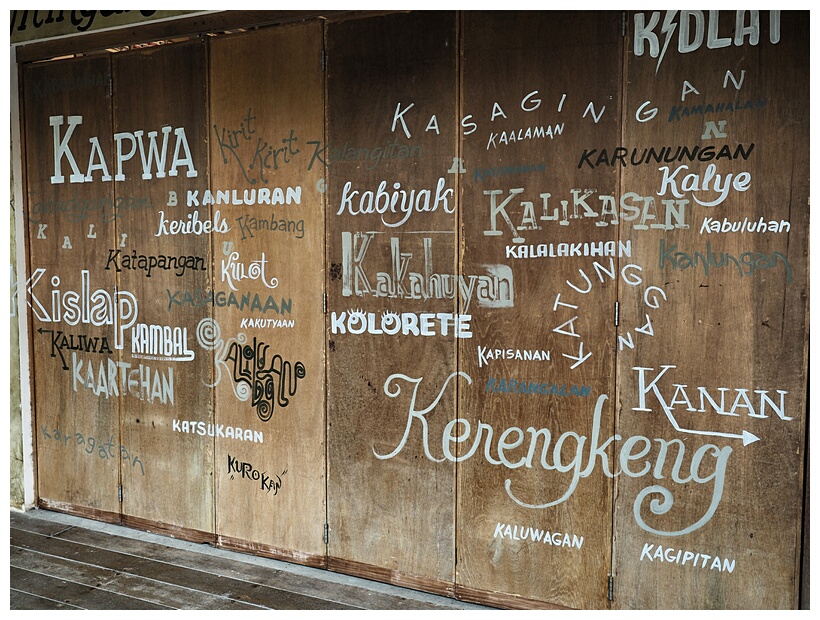 KIDLAT
KASAGINGAN
KAALAMAN
KAMAHALAN
KAPWA
Kirit Kirit
Kalangitan
KARUNUNGAN
Kalye
KANLURAN
kabiyak
KALIKASAN
Kabuluhan
keribels
Kambang
KALI
Katapangan
Kulot
Kakahuyan
KALALAKIHAN
Kanlungan
KATUNGGAN
Kislap
KAGAGANAAN
KAKUTYAAN
KOLORETE
KALIWA
KAMBAL
KAPISANAN
KAARTEHAN
KANAN
Kerengkeng
KATSUKARAN
Karagatan
"KUROKAN"
KALUWAGAN
KAGIPITAN